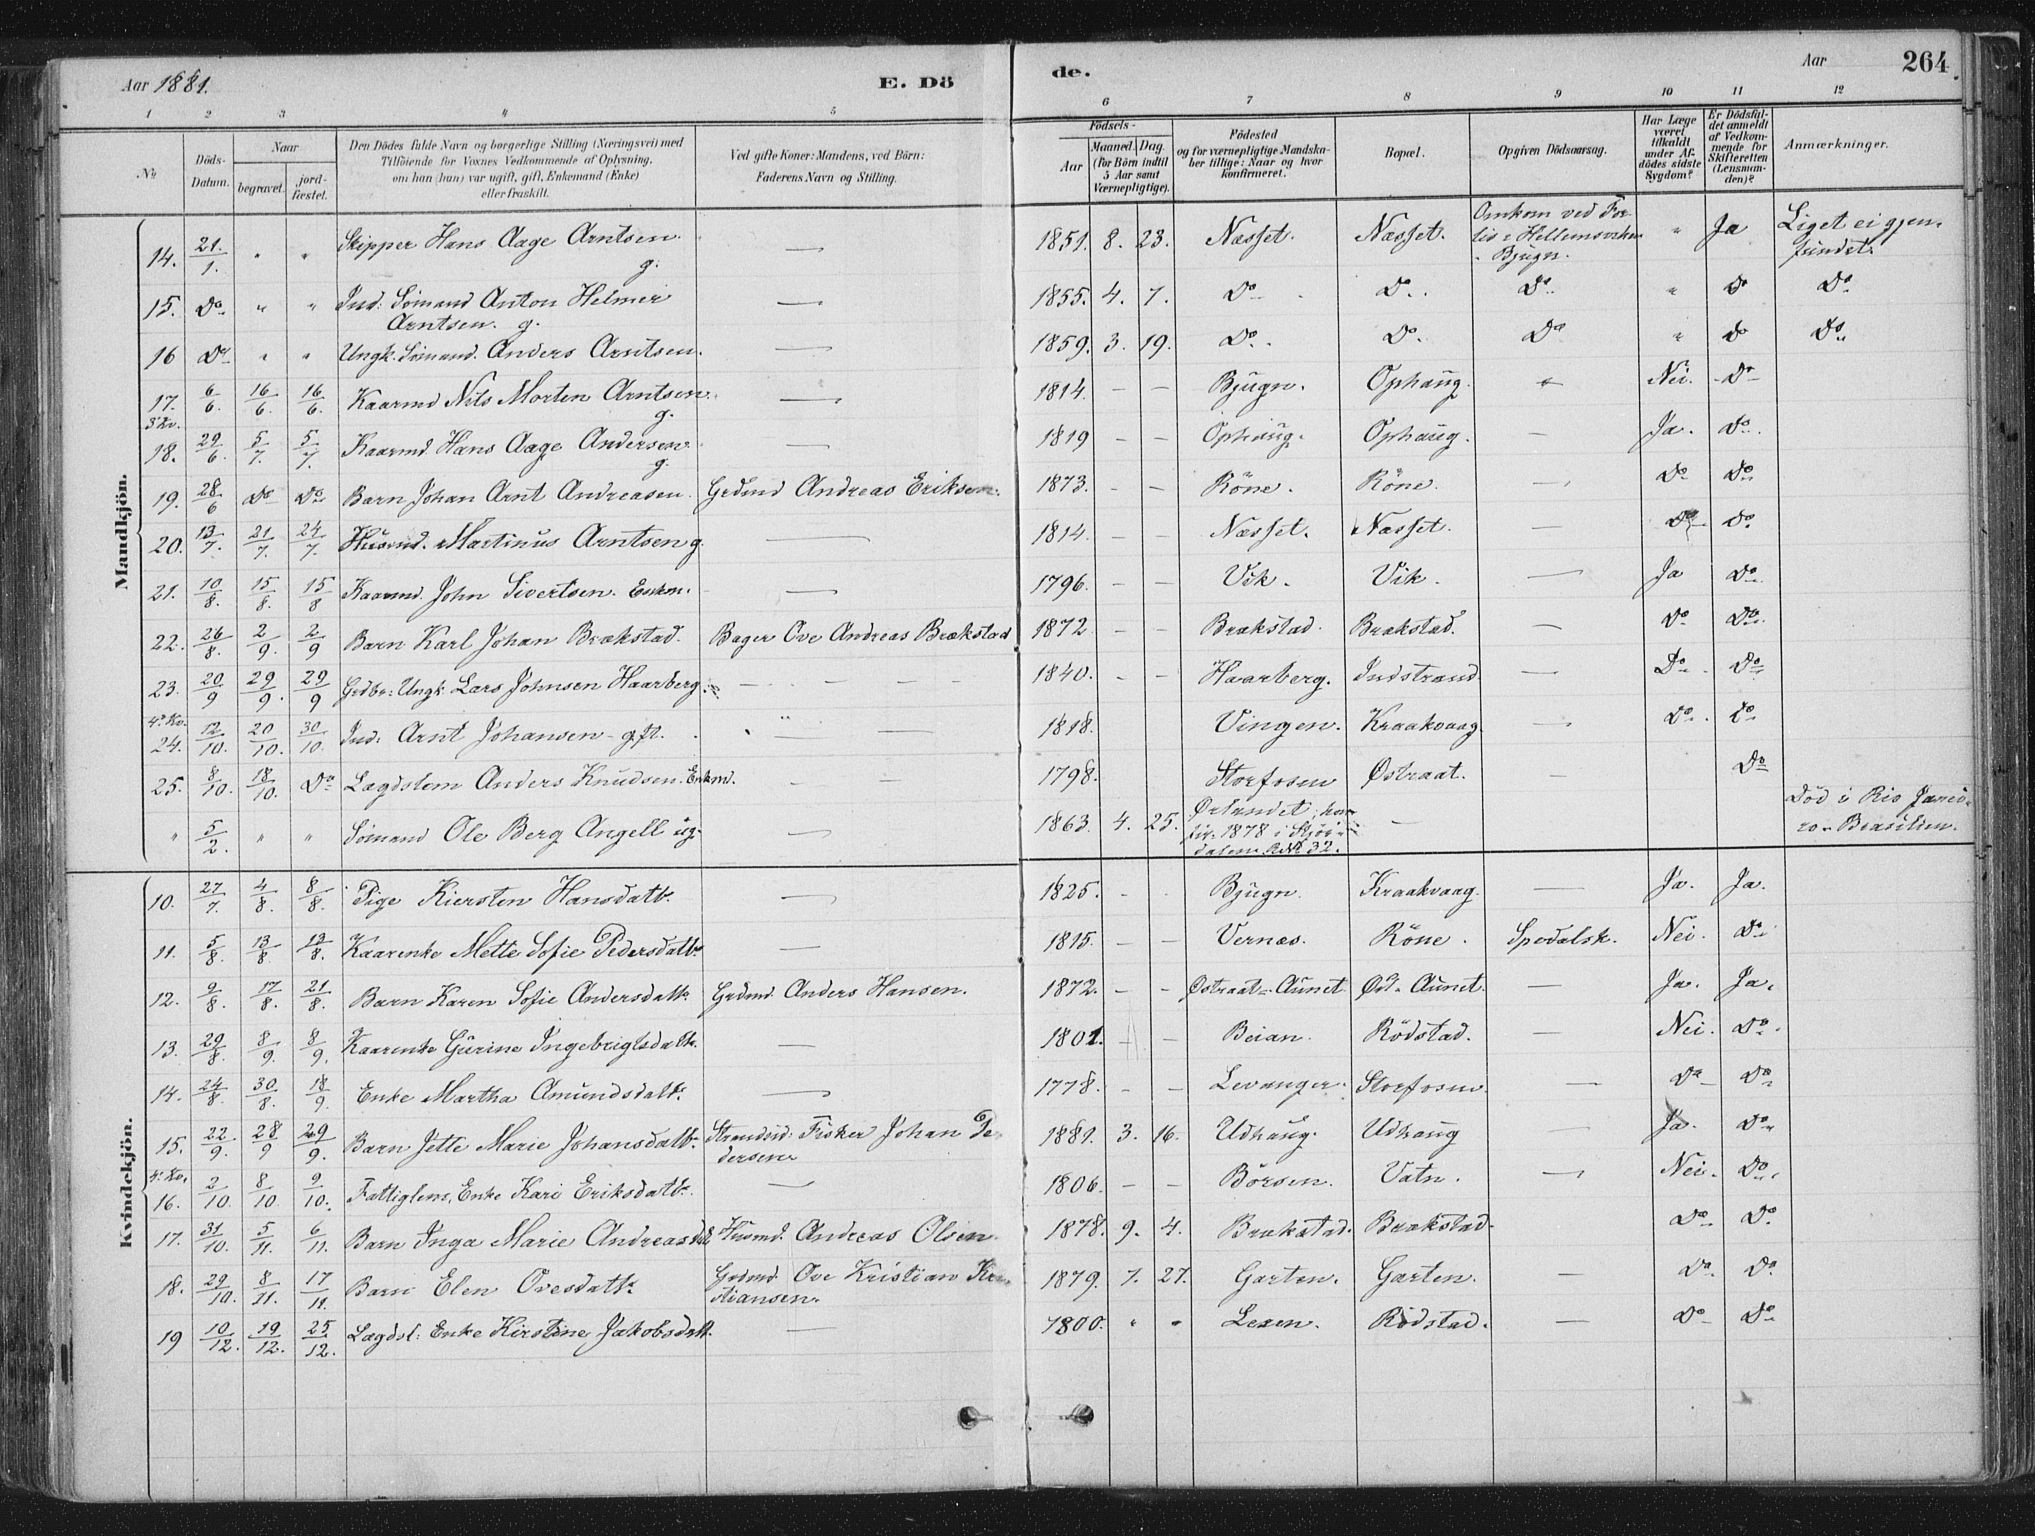 Aar 1881.
E. Dö
de.
Aar
264
1 2 3 4 5 6 7 8 9 10 11 12
No
Döds-Datum.
Naar
begravet.
jord-fæstet.
Den Dödes fulde Navn og borgerlige Stilling (Næringsvei) med
Tilföiende for Voxnes Vedkommende af Oplysning,
om han (hun) var ugift, gift, Enkemand (Enke)
eller fraskilt.
Ved gifte Koner: Mandens, ved Börn:
Faderens Navn og Stilling.
Födsels-
Aar
Maaned. Dag.
(for Börn indtil
5 Aar samt
Værnepligtige).
Födested
og for værnepligtige Mandska-
ber tillige: Naar og hvor
konfirmeret.
Bopæl.
Opgiven Dödsaarsag.
Har Læge
været
tilkaldt
under Af-
dödes sidste
Sygdom?
Er Dödsfal-
det anmeldt
af Vedkom-
mende for
Skifteretten
(Lensman-
den)?
Anmærkninger.
Mandkjön.
14. 21/1. " " Skipper Hans Aage Arntsen g. — 1851. 8. 23. Næsset. Næsset. Omkom ved For-
lis i Hellemsviken
i Bjugn. " Ja Liget ei gjen-
fundet.
15. Do " " Ind: Sömand Anton Helmer
Arntsen. g. — 1855. 4. 7. Do Do Do " do Do
16 Do " " Ungk. Sömand. Anders Arntsen. — 1859. 3. 19. Do Do Do " do Do
17. 6/6. 16/6. 16/6. Kaarmd Nils Morten Arntsen g. — 1814. — — Bjugn. Ophaug. Nei. Do
3' Kv.
18. 29/6. 5/7. 5/7. Kaarmd. Hans Aage Andersen g. — 1819 — — Ophaug. Ophaug. — Ja. Do
19. 28/6 Do Do Barn Johan Arnt Andreasen. Grdmd Andreas Eriksen. 1873. — — Röne. Röne. — Do Do
20. 13/7. 21/7. 24/7. Husmd. Martinus Arntsen g. — 1814. — — Næsset. Næsset. — Do Do
21. 10/8. 15/8. 15/8 Kaarmd. John Sivertsen. Enkm. — 1796. — — Vik. Vik. — Ja Do
22. 26/8. 2/9. 2/9 Barn Karl Johan Brækstad. Bager Ove Andreas Brækstad 1872 — — Brækstad. Brækstad. — Do Do
23. 20/9 29/9. 29/9 Grdbr: Ungk. Lars Johnsen Haarberg. — 1840. — — Haarberg. Indstrand — Do Do
4' Kv.
24. 12/10. 20/10. 30/10. Ind: Arnt Johansen gft. — 1818. Vingen. Kraakvaag. — Do Do
25. 8/10. 18/10. Do Lægdslem Anders Knudsen. Enkmd. — 1798. Storfosen Østraat. — Do
" 5/2. " " Sömand Ole Berg Angell ug. — 1863. 4. 25. Ørlandet, kon-
fir. 1878 i Stjör-
dalen. R.N. 32. — Död i Rio Janei-
ro. Brasilien.
Kvindekjön.
10. 27/7. 4/8. 8/8. Pige Kiersten Hansdatt. — 1825. — — Bjugn. Kraakvaag. — Ja. Ja.
11. 5/8. 13/8. 13/8. Kaarenke Mette Sofie Pedersdatt. — 1815. — — Vernæs. Röne. Spedalsk. Nei. Do
12. 9/8. 17/8. 21/8. Barn Karen Sofie Andersdatt. Grdmd. Anders Hansen. 1872. — — Østraat-Aunet Øst-Aunet. — Ja. Ja.
13. 29/8. 8/9. 8/9. Kaarenke Gurine Ingebrigtsdatt. — 1801. — — Beian. Rödstad. — Nei. Do
14. 24/8. 30/8. 18/9. Enke Martha Amundsdatt. — 1778. — — Levanger. Storfosen. — Do Do
15. 22/9. 28/9 29/9. Barn Jette Marie Johansdatt. Strandsid: Fisker Johan Pe-
dersen 1881. 3. 16. Udhaug. Udhaug — Ja. Do
4' Kv.
16. 2/10. 8/10 9/10. Fattiglem, Enke Kari Eriksdatt. — 1806. — — Börsen. Vatn. — Nei. Do
17. 31/10. 5/11. 6/11. Barn Inga Marie Andreasdatt Husmd. Andreas Olsen 1878. 9. 4. Brækstad. Brækstad. Do Do
18. 29/10. 8/11. 17/11. Barn Elen Ovesdatt. Grdmd. Ove Kristian Kri-
stiansen. 1879. 7. 27. Garten. Garten. — Do Do
19 10/12. 19/12. 25/12. Lægdsl: Enke Kirstine Jakobsdatt. — 1800. " " Lexen. Rödstad. — Do Do